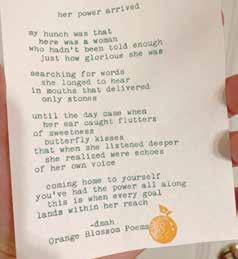 her power arrived
my hunch was that
here was a woman
who hadn't been told enough
just how glorious she was
searching for words
she longed to hear
in mouths that delivered
only stones
until the day came when
her ear caught flutters
of sweetness
butterfly kisses
that when she listened deeper
she realized were echoes
of her own voice
coming home to yourself
you've had the power all along
this is when every goal
lands within her reach
-dmah
Orange Blossom Poems